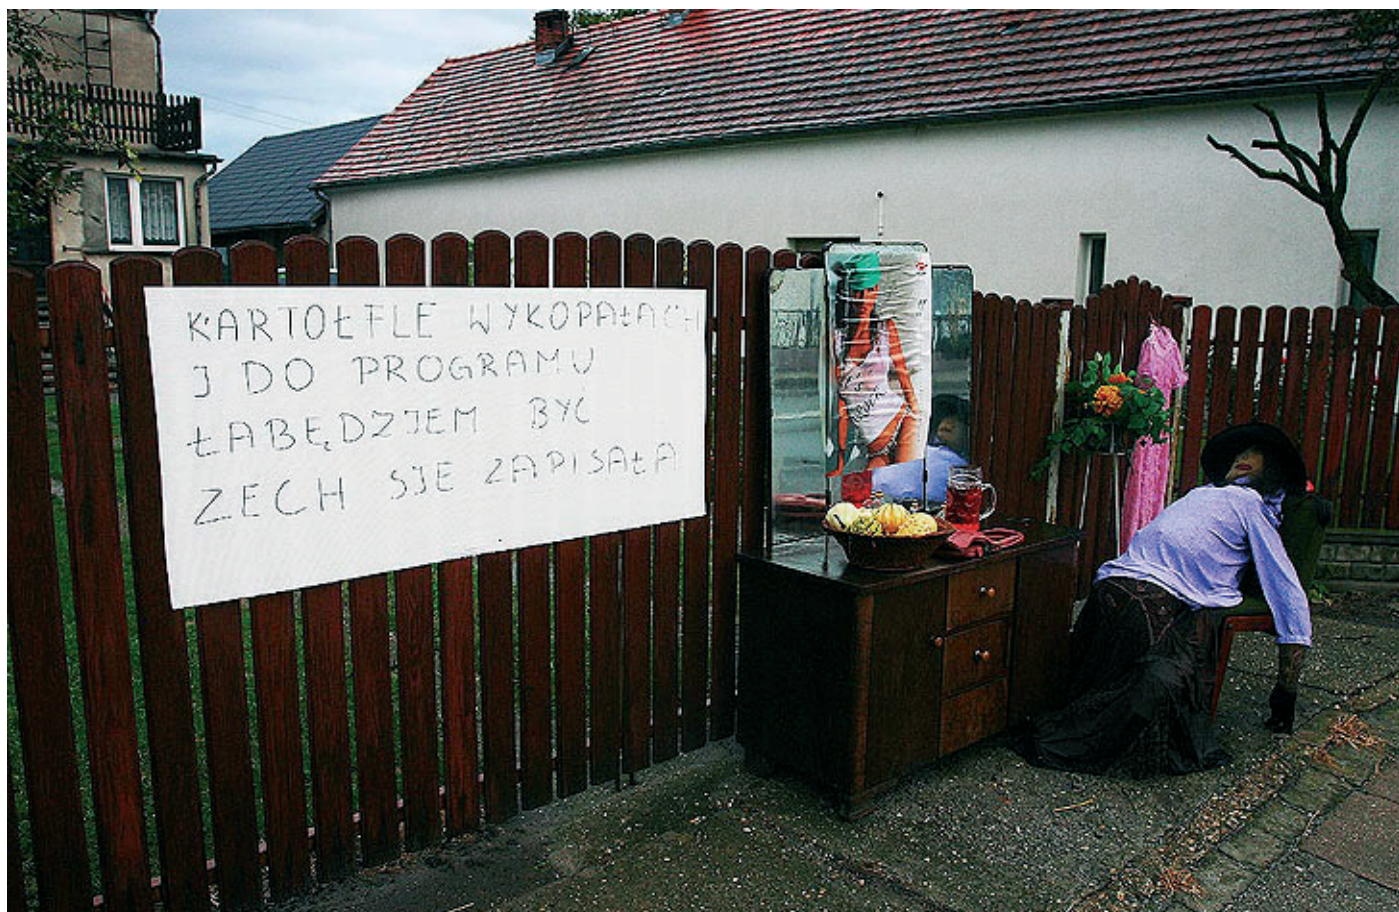 KARTOŁFLE WYKOPAŁACH
J DO PROGRAMU
ŁABĘDZJEM BYĆ
ZECH SJE ZAPISAŁA